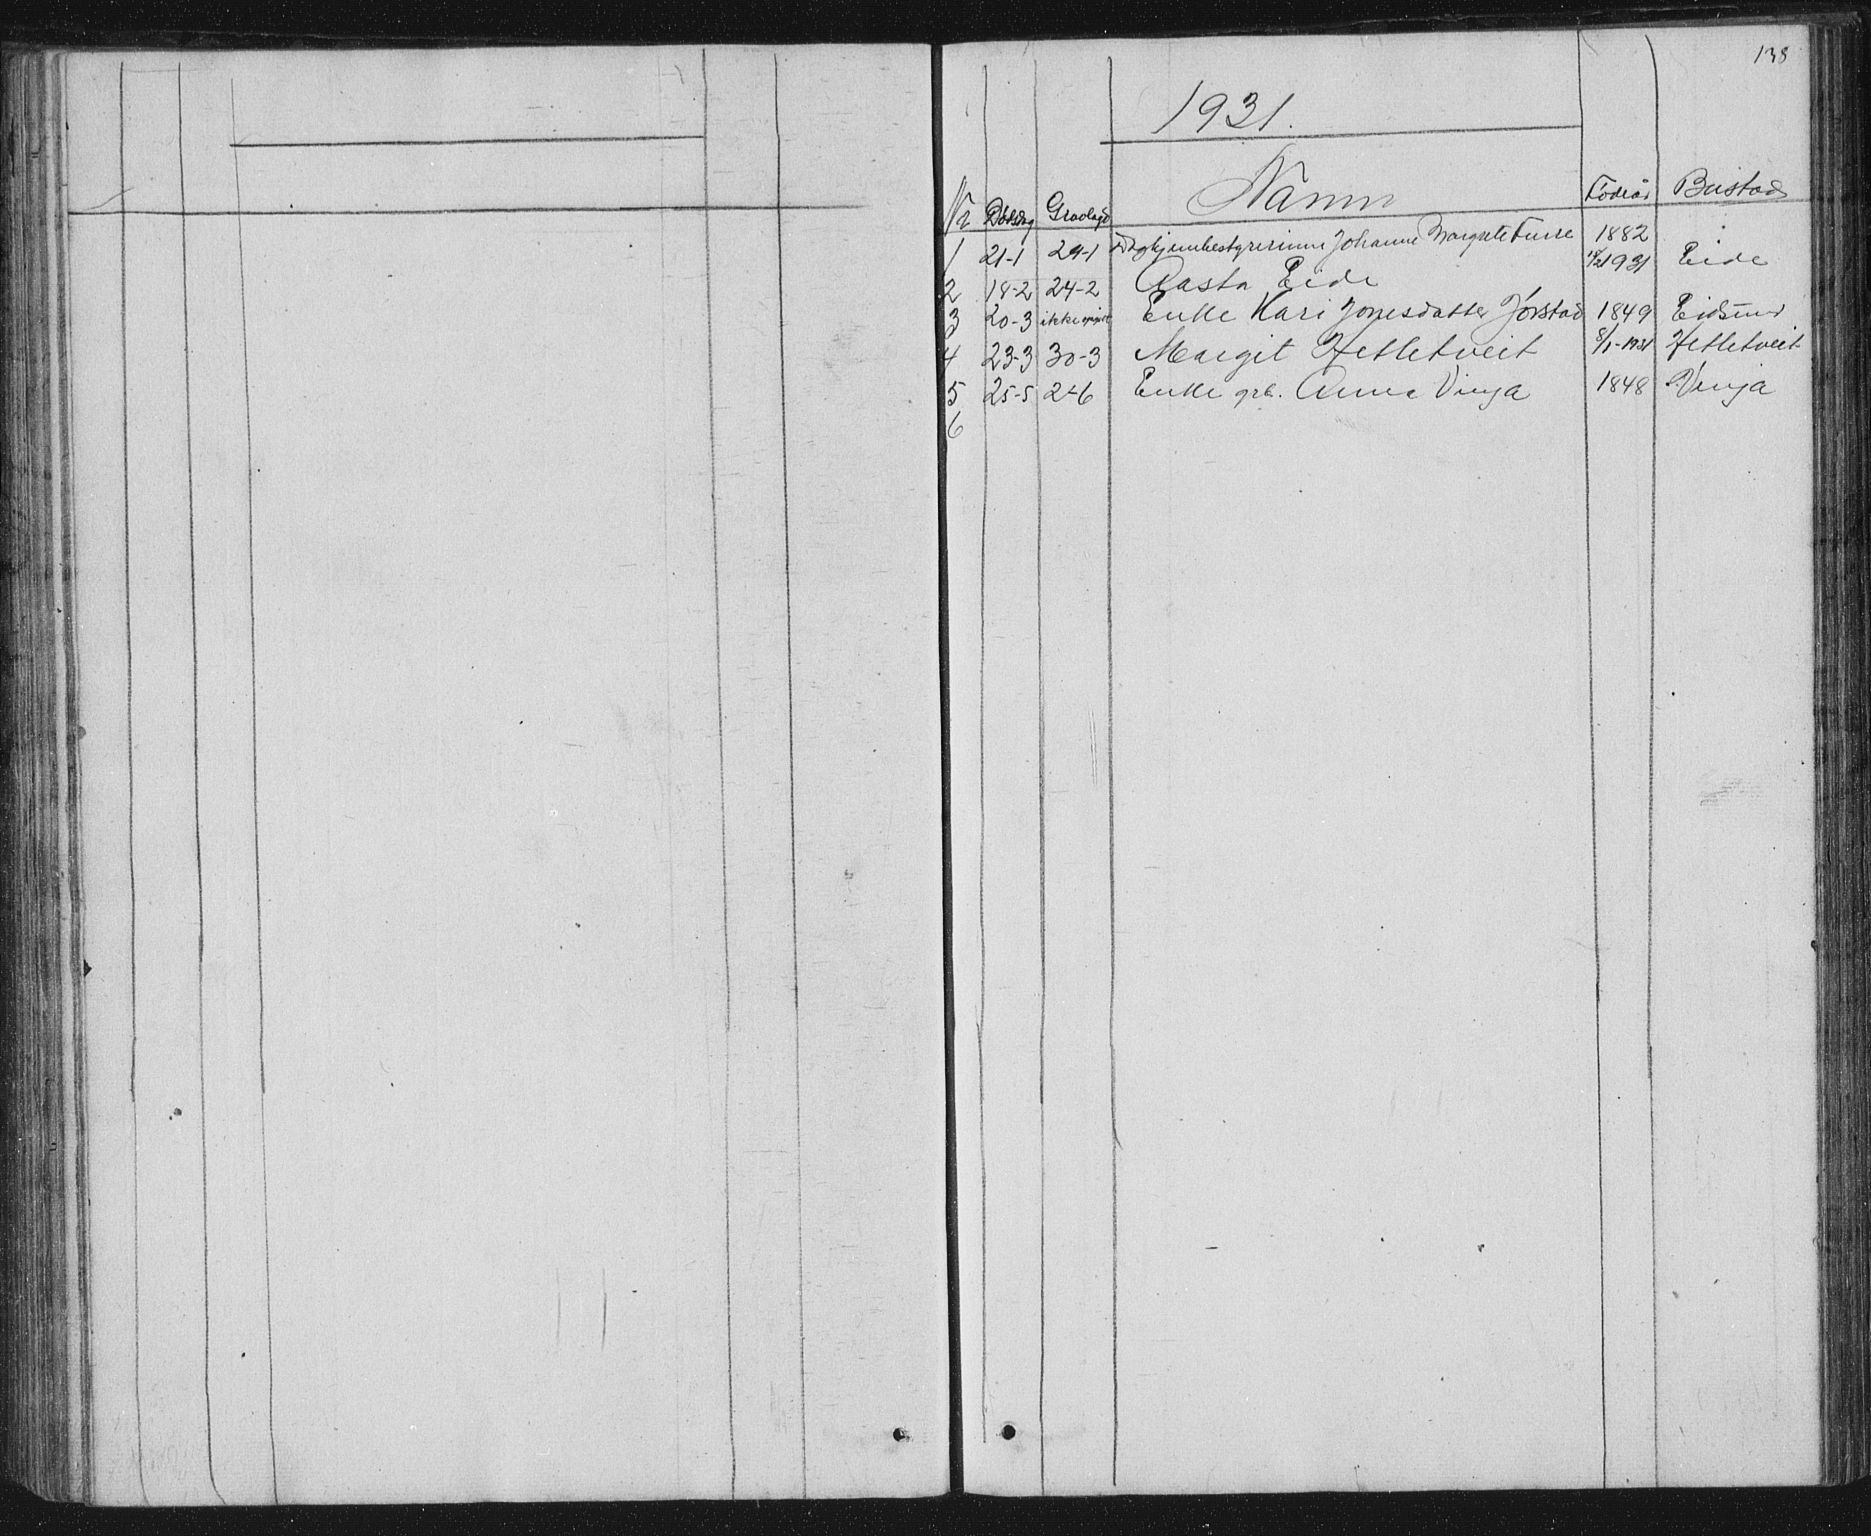 138
1931.
Nr Dødsdag Gravlagd Namn Fødeår Bustad
1 21-1 29-1 Johanne Margrete Furre 1882
2 18-2 24-2 Aasta Eide 1931 Eide
3 20-3 ikke Enke Kari Jonesdatter Jørstad 1849 Eidsund
4 23-3 30-3 Margit Hetletveit 8/1-1931 Hetletveit
5 25-5 2-6 Enke grb. Anna Vinja 1848 Vinja
6